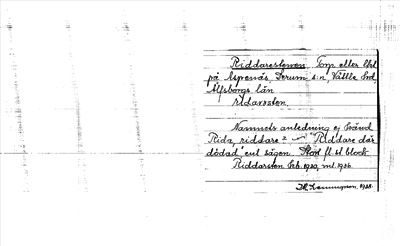 Riddarestenen Torp eller lht
på Aspenäs, Lerum s:n, Vättle hd,
Älfsborgs län
ridarosten
Namnets anledning ej känd
Rida, riddare: ~ "Riddare där
dödad" enl sägen. Stort fl. st block
Riddarsten Feb. 1930, ml. 1936
1938.